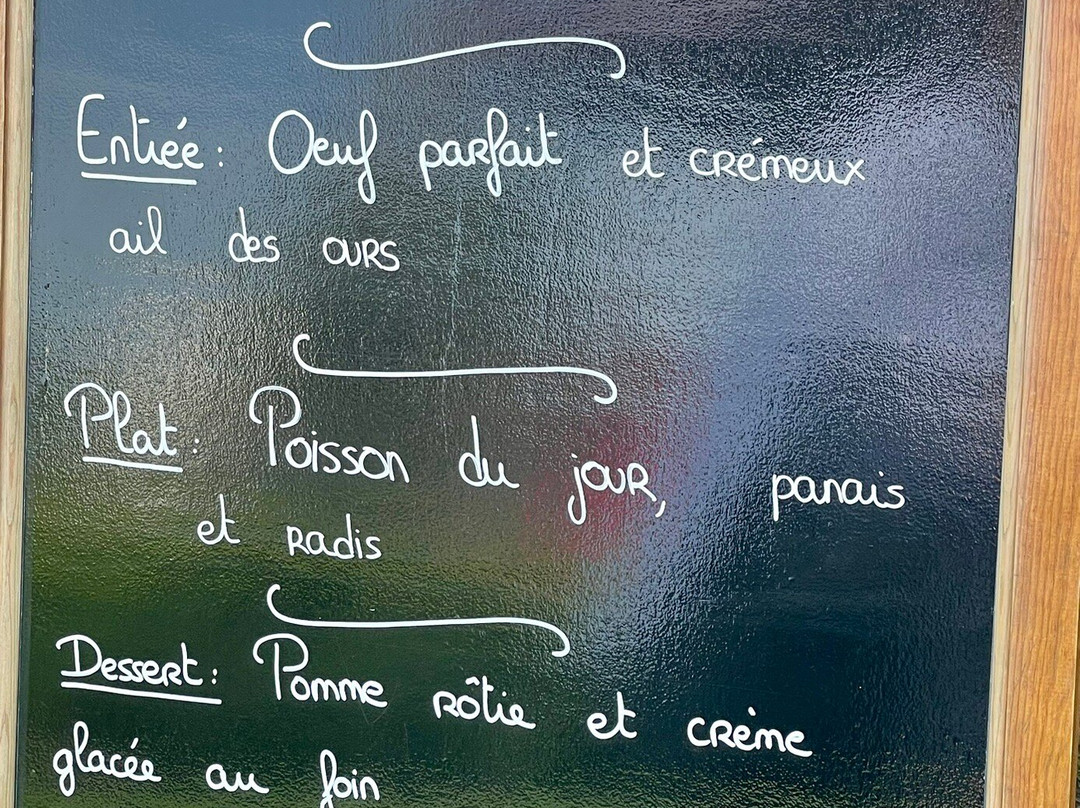 Entrée : Oeuf parfait et crémeux
ail des ours
Plat : Poisson du jour, panais
et radis
Dessert : Pomme rôtie et crème
glacée au foin